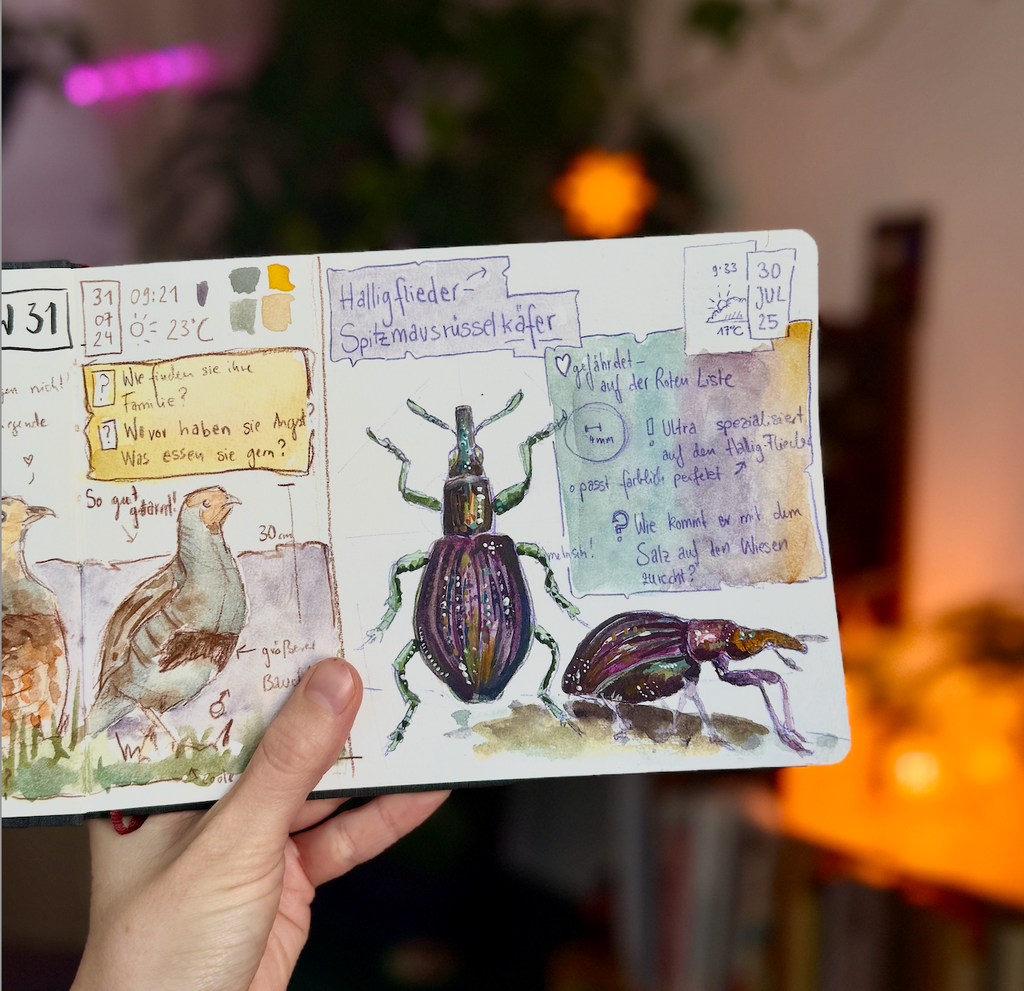 31
31
07
24
09:21
23°C
nicht!
? Wie finden sie ihre
Familie?
? Wovor haben sie Angst?
Was essen sie gern?
So gut
getarnt!
30cm
größerer
Bauch
♂
Halligflieder-
Spitzmausrüsselkäfer
9:33
17°C
30
JUL
25
♡ gefährdet-
auf der Roten Liste
4mm
! Ultra spezialisiert
auf den Hallig-Flieder
passt farblich perfekt
? Wie kommt er mit dem
Salz auf den Wiesen
zurecht?